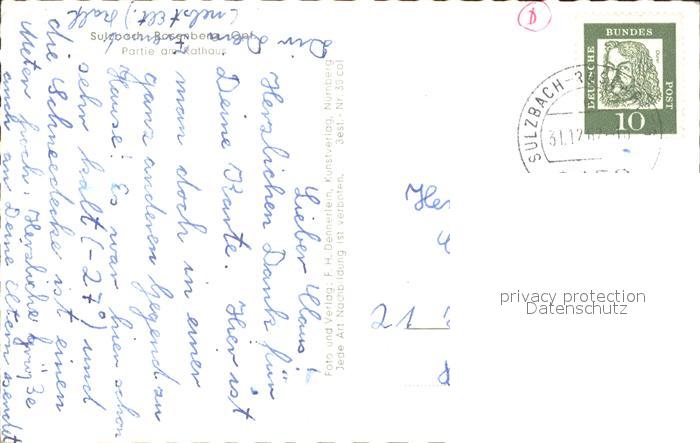 Sulzbach-Rosenberg Opf.
Partie am Rathaus
Lieber Klaus!
Herzlichen Dank für
Deine Karte. Hier ist
man doch in einer
ganz anderen Gegend zu
Hause! Es war hier schon
sehr kalt (-27°) und
die Schneedecke ist einen
Meter hoch. Herzliche Grüße
auch an Deine Eltern sendet
Dir Dein
(nebst Elt.)
Foto und Verlag, F. H. Dennerlein, Kunstverlag, Nürnberg
Jede Art Nachbildung ist verboten. Best.-Nr. 35 col
D
DEUTSCHE BUNDES POST
Dürer
10
SULZBACH-R
31.12.6
He
21
privacy protection
Datenschutz